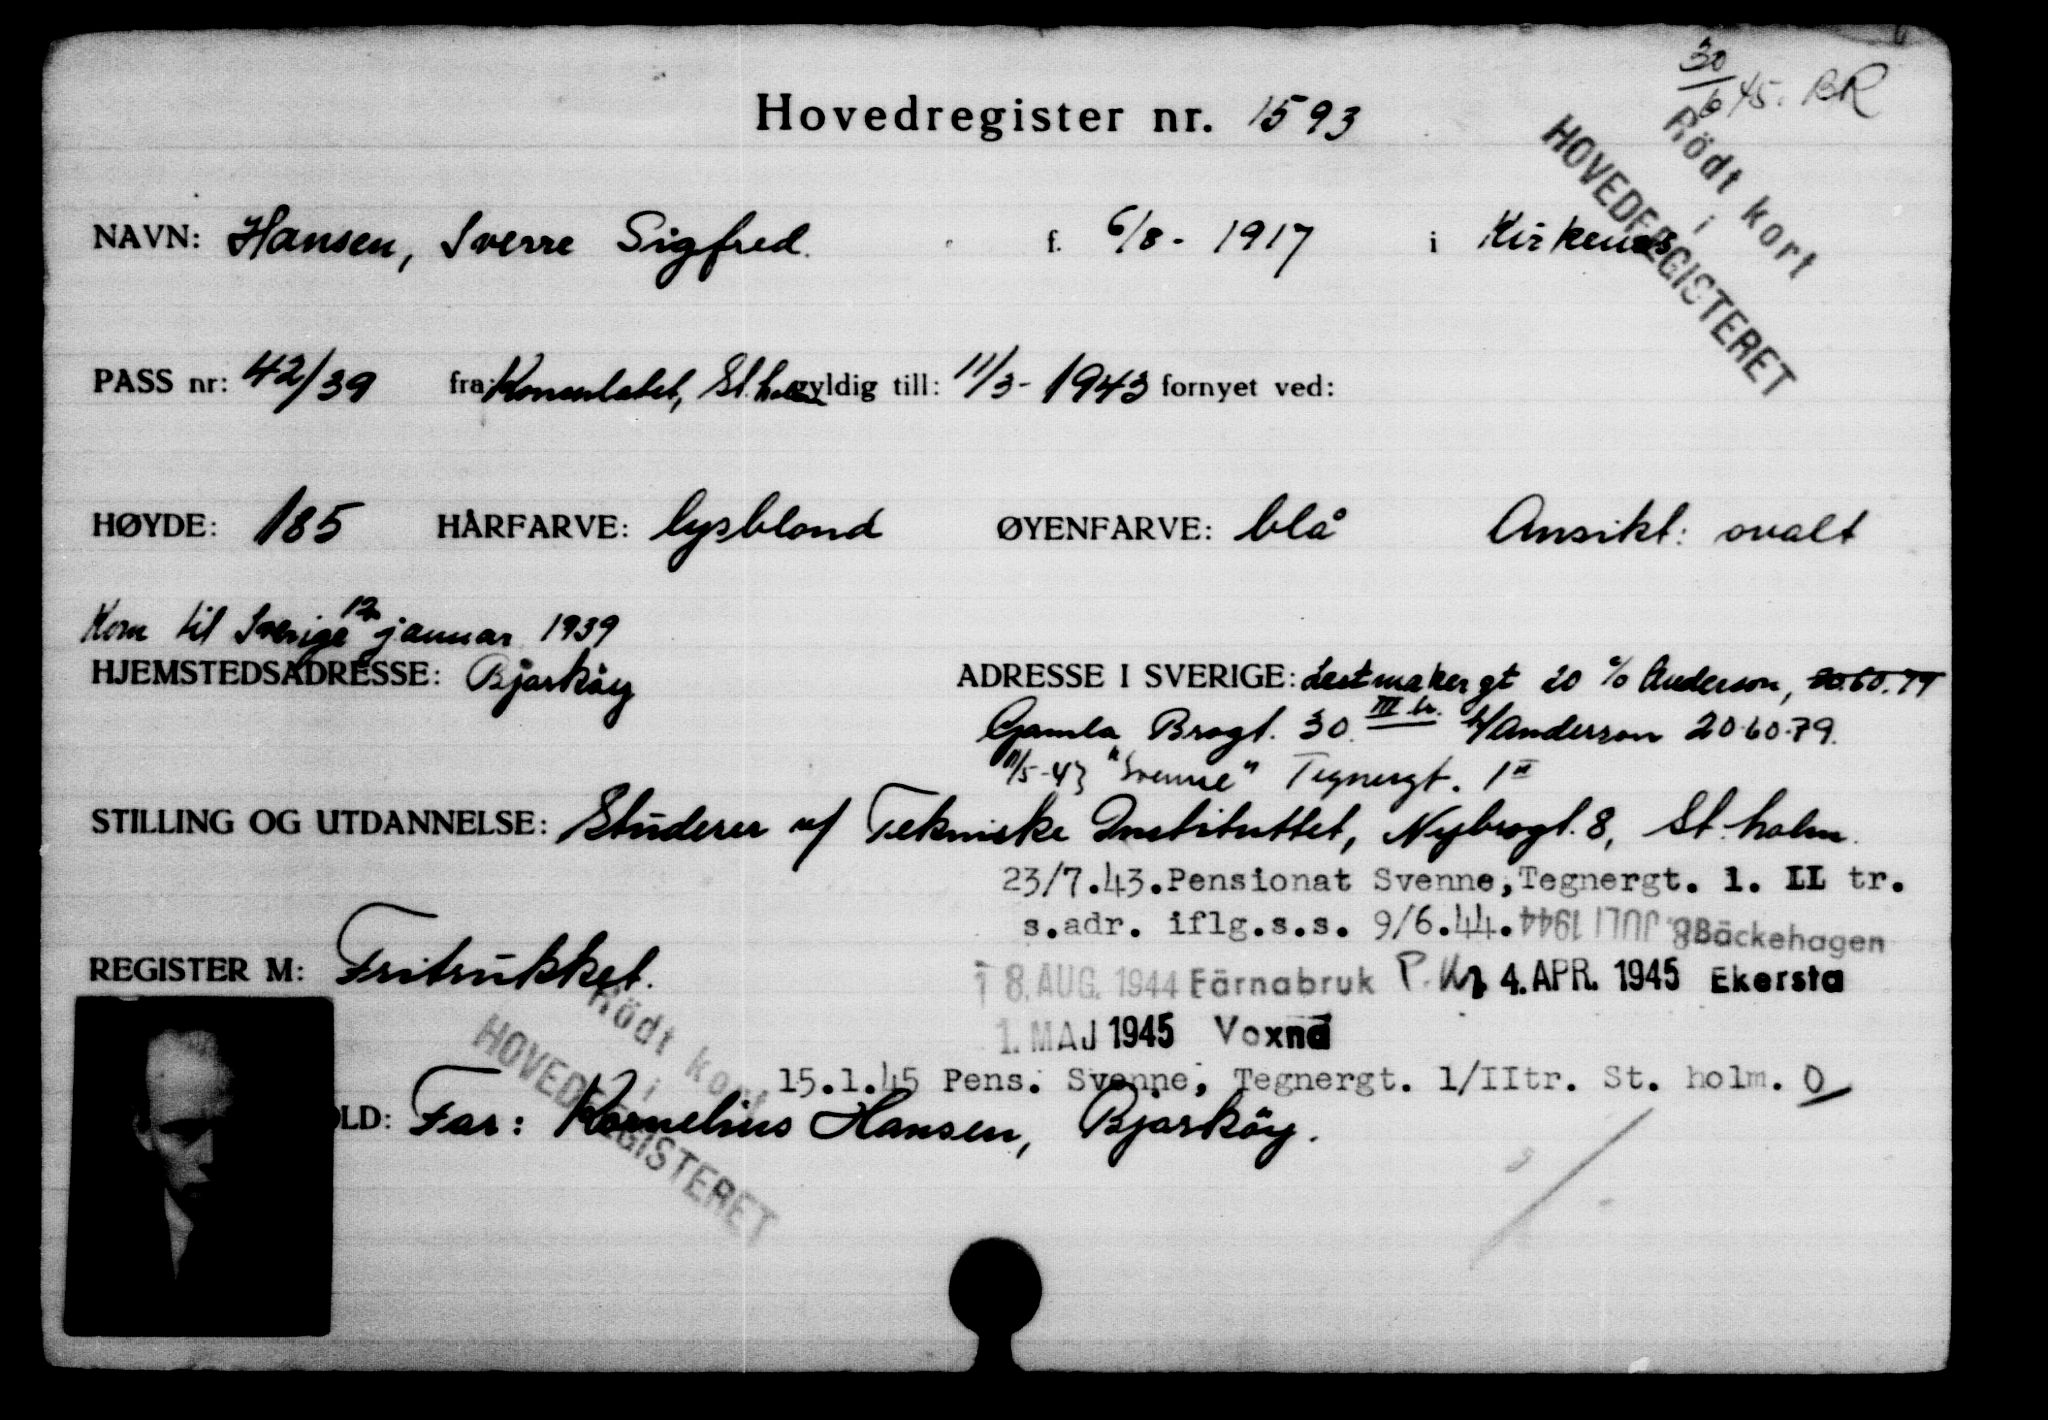 30/6 45. BR
Hovedregister nr. 1593
Rödt kort
i
HOVEDREGISTERET
NAVN: Hansen, Sverre Sigfred. f. 6/8 - 1917 i Kirkenes
PASS nr: 42/39 fra: Konsulatet, St.holm gyldig till: 11/3 - 1943 fornyet ved:
HØYDE: 185 HÅRFARVE: lysblond ØYENFARVE: blå Ansikt: ovalt
Kom til Sverige 12 januar 1939
HJEMSTEDSADRESSE: Bjarköy ADRESSE I SVERIGE: Lestmakergt 20 c/o Anderson, 20.60.79
Gamla Brogt. 30 III tr. c/o Anderson 20.60.79.
11/5-43 "Svenne" Tegnergt. 1 II
STILLING OG UTDANNELSE: Studerer v/ Tekniske Instituttet, Nybrogt. 8, St.holm.
23/7.43. Pensionat Svenne, Tegnergt. 1. II tr.
s.adr. iflg.s.s. 9/6.44. 8. JULI 1944 Bäckehagen
REGISTER M: Fritrukket.
18. AUG. 1944 Färnabruk 4. APR. 1945 Ekersta
1. MAJ 1945 Voxna
Rödt kort
i
HOVEDREGISTERET
15.1.45 Pens. Svenne, Tegnergt. 1/IItr. St. holm. O
OLD: Far: Kornelius Hansen, Bjarköy.